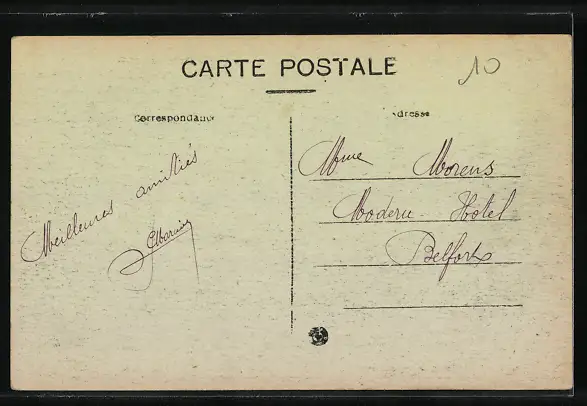 CARTE POSTALE
10
Correspondance
Adresse
Meilleures amitiés
Mme Morens
Modern Hotel
Belfort